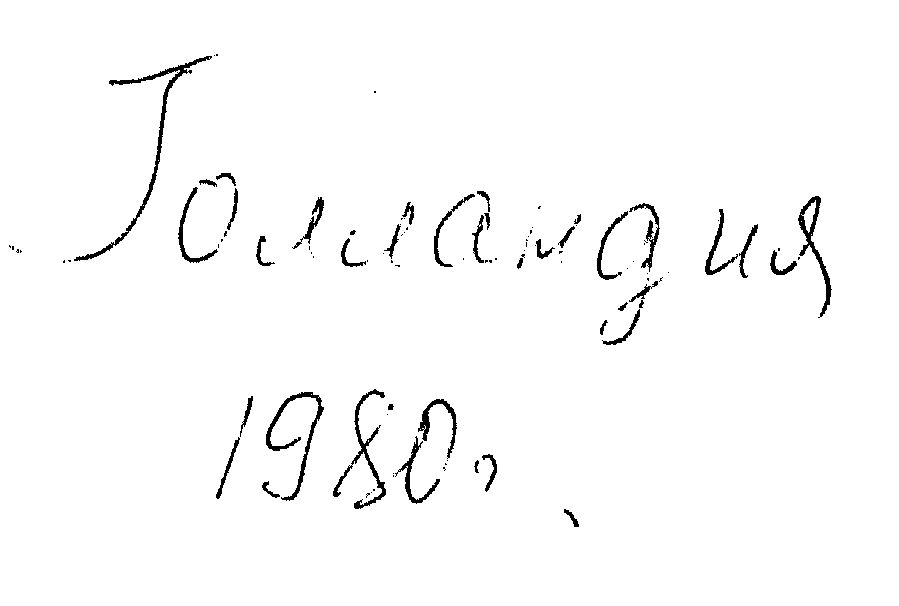 Голландия
1980г.